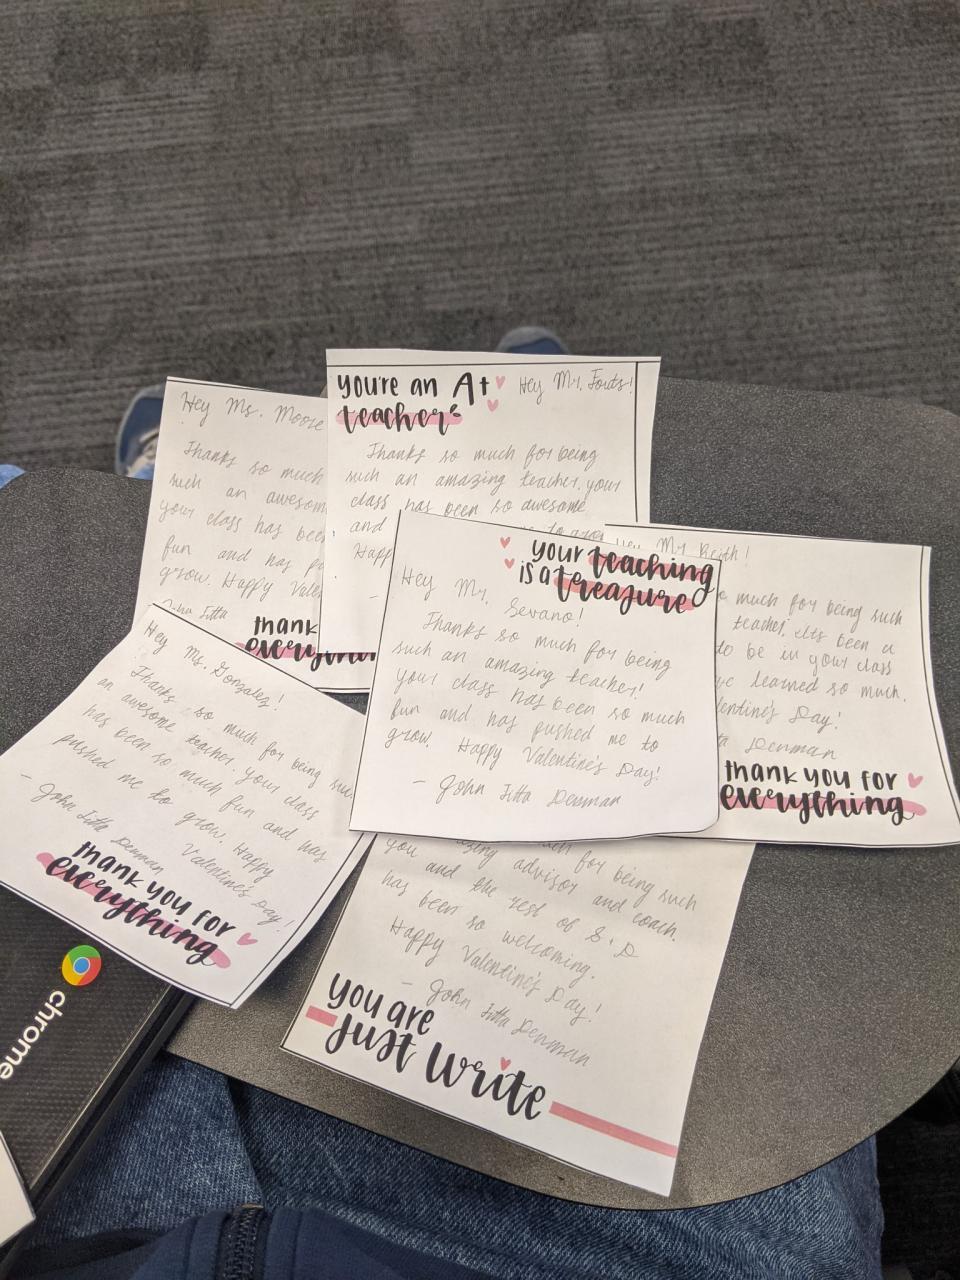 Hey Ms. Moore
Thanks so much
such an awesom
your class has been
fun and has p
grow. Happy Valen
John Titta
thank
everything
you're an A+
teacher
Hey Mr. Fouts!
Thanks so much for being
such an amazing teacher, your
class has been so awesome
and
to grow
Happ
-
Hey Mr. Keith!
o much for being such
teacher, its been a
to be in your class
ve learned so much.
lentine's Day!
ta Denman
thank you for
everything
your teaching
is a treasure
Hey Mr. Sevano!
Thanks so much for being
such an amazing teacher!
your class has been so much
fun and has pushed me to
grow. Happy Valentine's Day!
- John Titta Denman
Hey Ms. Gonzalez!
Thanks so much for being su
an awesome teacher. your class
has been so much fun and has
pushed me to grow. Happy
Valentine's Day!
- John Titta Denman
thank you for
everything
azing advisor and coach.
ch for being such
you and the rest of S+D
has been so welcoming.
Happy Valentine's Day!
- John Titta Denman
you are
just write
chrome